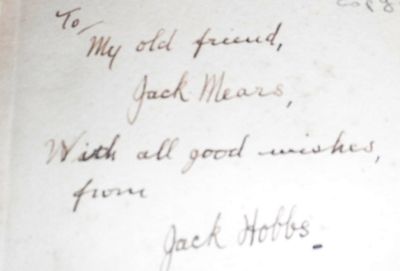 To,
My old friend,
Jack Mears,
With all good wishes,
from
Jack Hobbs.